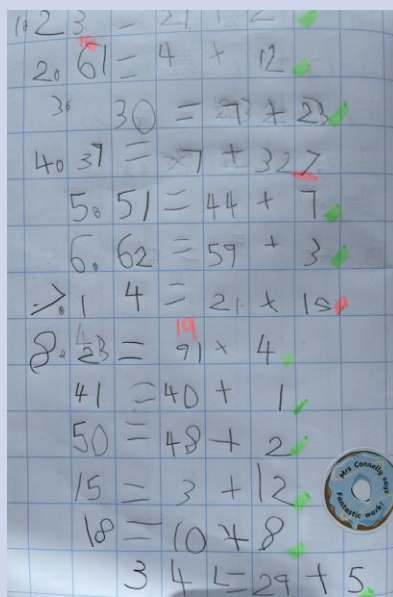 1. 23 = 21 + 2
16
2. 61 = 4 + 12
3. 30 = 7 + 23
4. 37 = 7 + 327
5. 51 = 44 + 7
6. 62 = 59 + 3
7. 1 4 = 21 + 15
19
8. 23 = 91 + 4
41 = 40 + 1
50 = 48 + 2
15 = 3 + 12
18 = 10 + 8
3 4 = 29 + 5
Mrs Connelly says
Fantastic work!